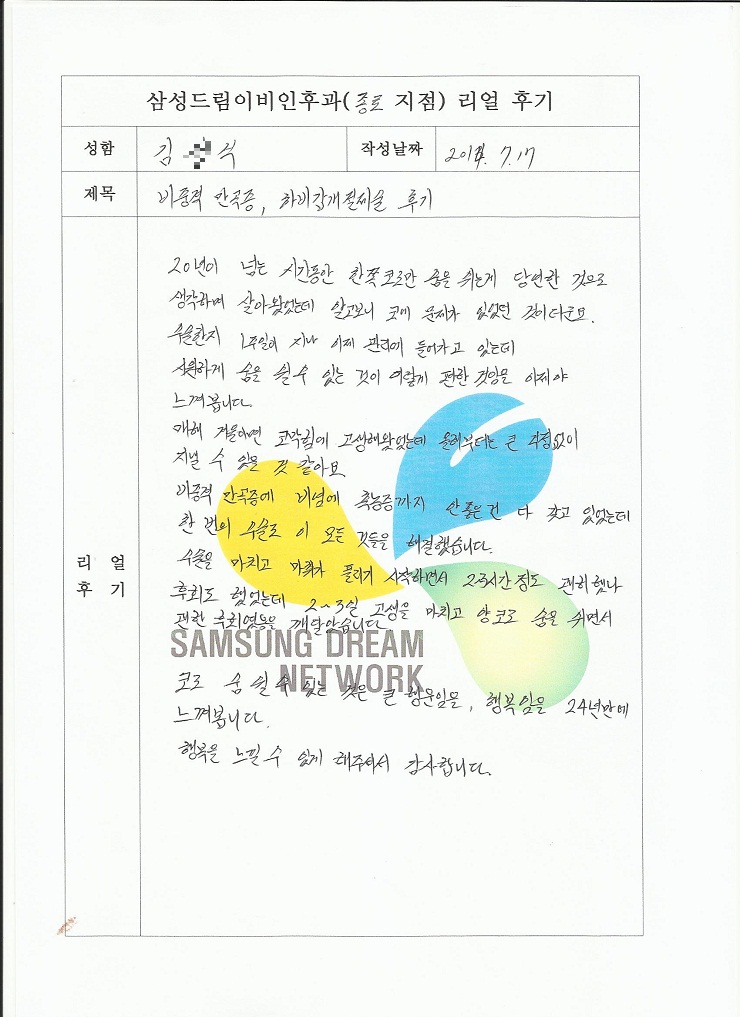 삼성드림이비인후과(종로 지점) 리얼 후기
성함 김 석 작성날짜 2014. 7. 17
제목 비중격 만곡증, 하비갑개절제술 후기
리 얼
후 기
20년이 넘는 시간동안 한쪽코로만 숨을 쉬는게 당연한 것으로
생각하며 살아왔었는데 알고보니 코에 문제가 있었던 것이더군요.
수술한지 1주일이 지나 이제 관리에 들어가고 있는데
시원하게 숨을 쉴 수 있는 것이 이렇게 편한 것임을 이제야
느껴봅니다.
매해 겨울이면 코막힘에 고생해왔었는데 올해부터는 큰 걱정없이
지낼 수 있을 것 같아요
비중격 만곡증에 비염에 축농증까지 안좋은건 다 갖고 있었는데
한 번의 수술로 이 모든 것들을 해결했습니다.
수술을 마치고 마취가 풀리기 시작하면서 2~3시간 정도 괜히했나
후회도 했었는데 2~3일 고생을 마치고 양코로 숨을 쉬면서
괜한 후회였음을 깨달았습니다
SAMSUNG DREAM
NETWORK
코로 숨 쉴 수 있는 것은 큰 행운임을, 행복임을 24년만에
느껴봅니다.
행복을 느낄 수 있게 해주셔서 감사합니다.